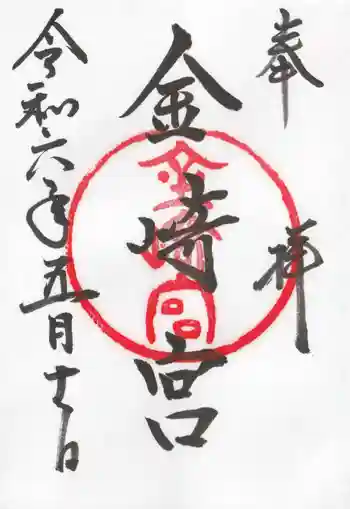 奉拝
金崎宮
令和六年五月十一日
金崎宮